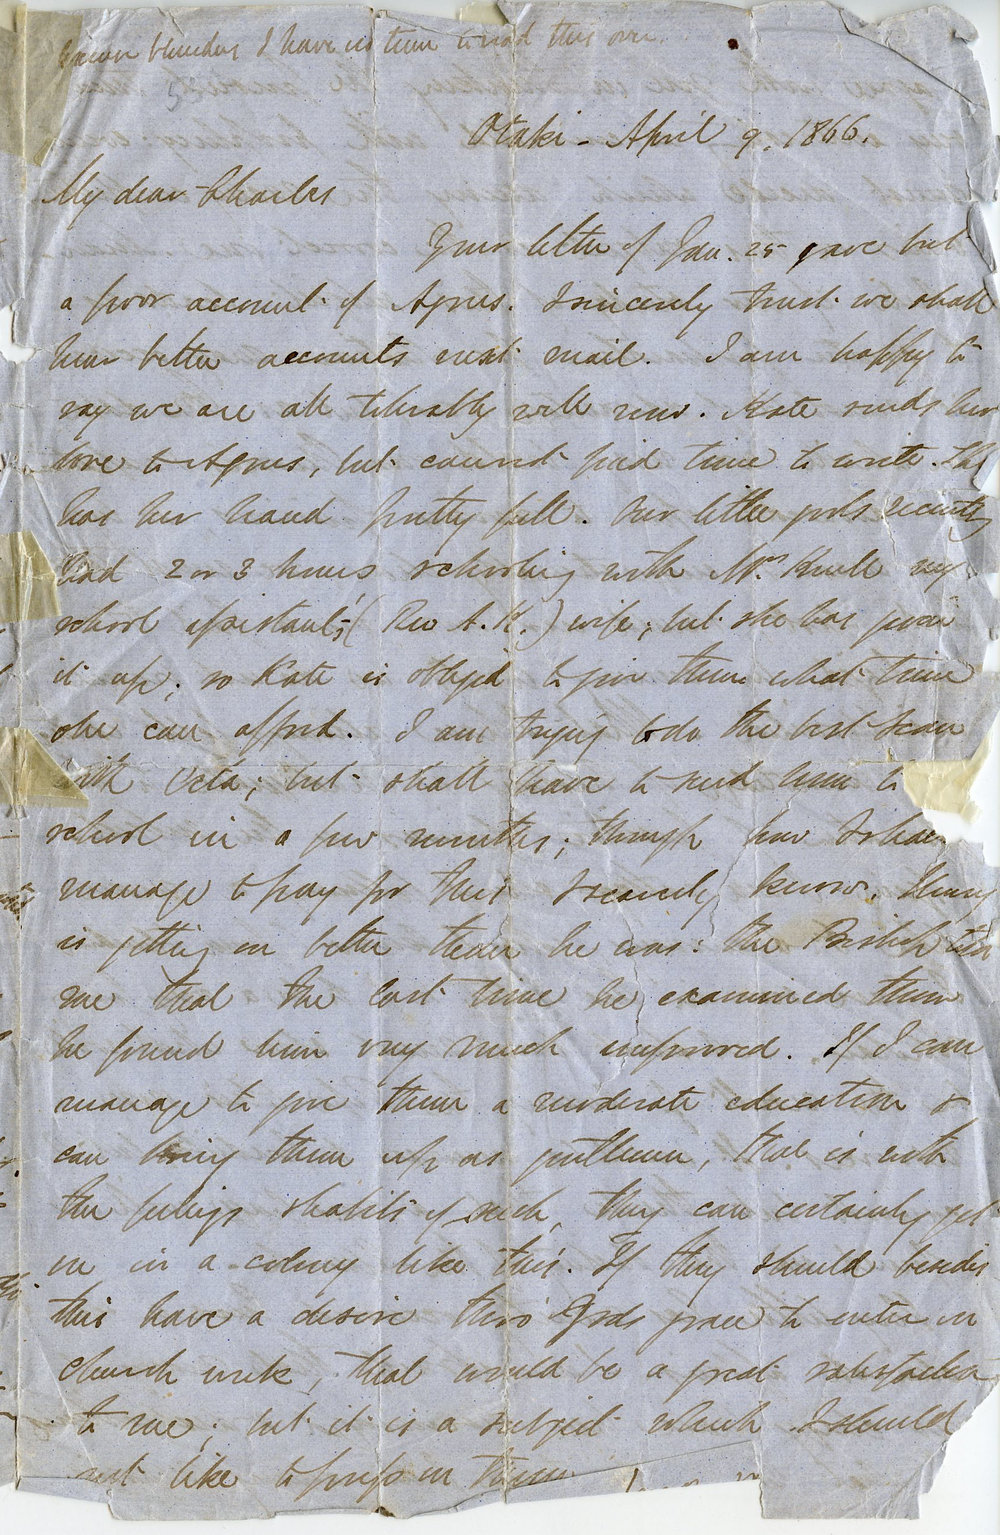 blunders I have no time to read this over.
Otaki - April 9. 1866.
My dear Charles
Your letter of Jan. 25 gave but
a poor account of Agnes. I sincerely trust we shall
hear better accounts next mail. I am happy to
say we are all tolerably well now. Kate sends her
love to Agnes, but cannot find time to write. She
has her hand pretty full. Our little girls recently
had 2 or 3 hours schooling with Mrs. Knell my
school assistant's (Rev A. K.) wife; but she has given
it up; so Kate is obliged to give them what time
she can afford. I am trying to do the best I can
with Octa; but shall have to send him to
school in a few months; though how I shall
manage to pay for this I scarcely know. Henry
is getting on better than he was: the Bishop tells
me that the last time he examined them
he found him very much improved. If I can
manage to give them a moderate education &
can bring them up as gentlemen, that is with
the feelings & habits of such, they can certainly get
on in a colony like this. If they should besides
this have a desire thro' Gods grace to enter on
church work, that would be a great satisfaction
to me; but it is a subject which I should
not like to press on them